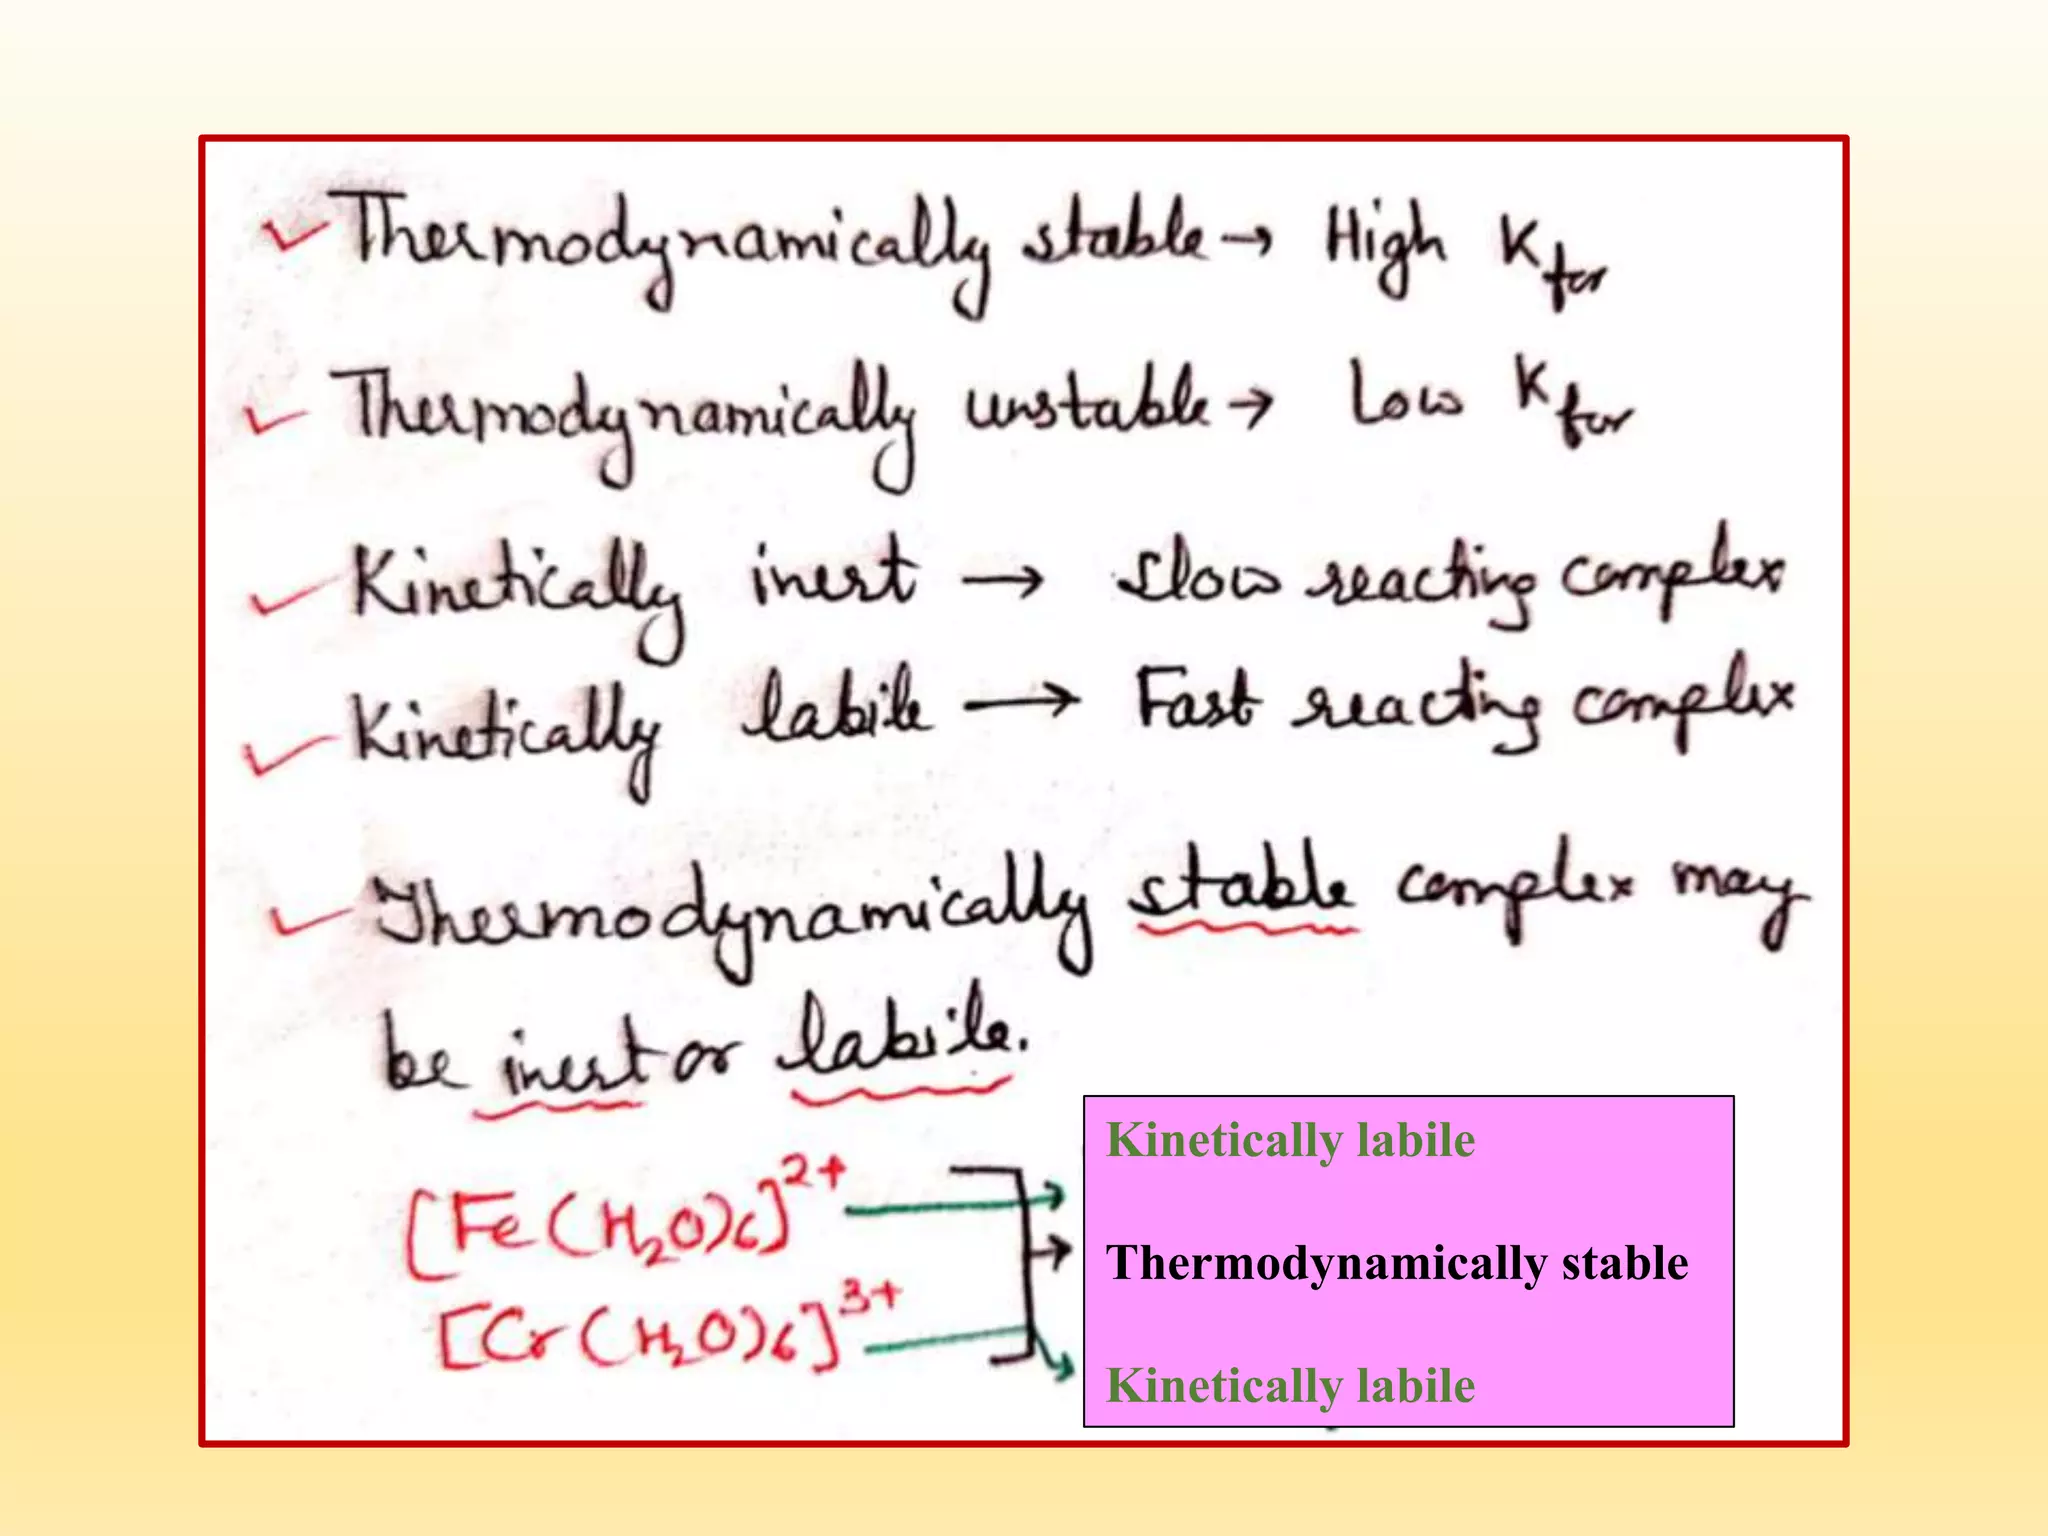 Thermodynamically stable → High Kfor
Thermodynamically unstable → Low Kfor
Kinetically inert → Slow reacting complex
Kinetically labile → Fast reacting complex
Thermodynamically stable complex may
be inert or labile.
[Fe(H₂O)₆]²⁺
[Cr(H₂O)₆]³⁺
Kinetically labile
Thermodynamically stable
Kinetically labile